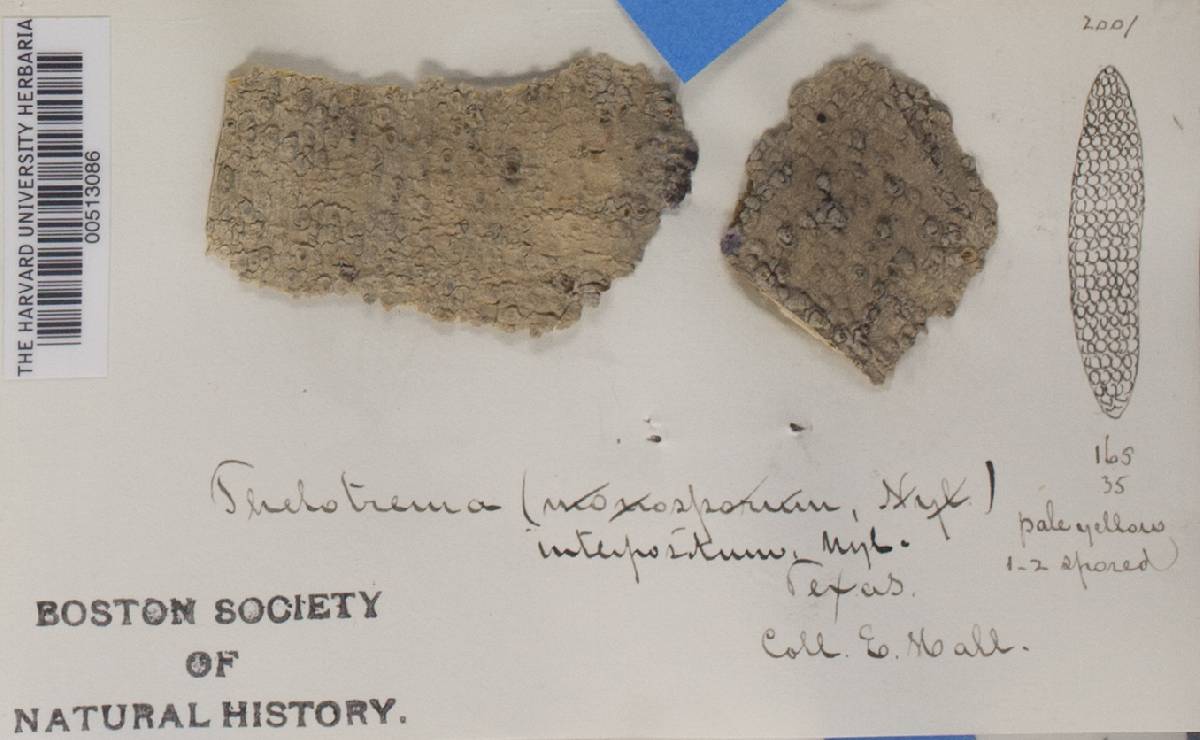 THE HARVARD UNIVERSITY HERBARIA
00513086
2001
165
35
pale yellow
1-2 spored
Thelotrema (monosporum, Nyl.)
interpositum, Nyl.
Texas.
Coll. E. Hall.
BOSTON SOCIETY
OF
NATURAL HISTORY.